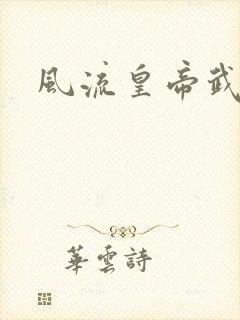 風流皇帝武
華雲詩